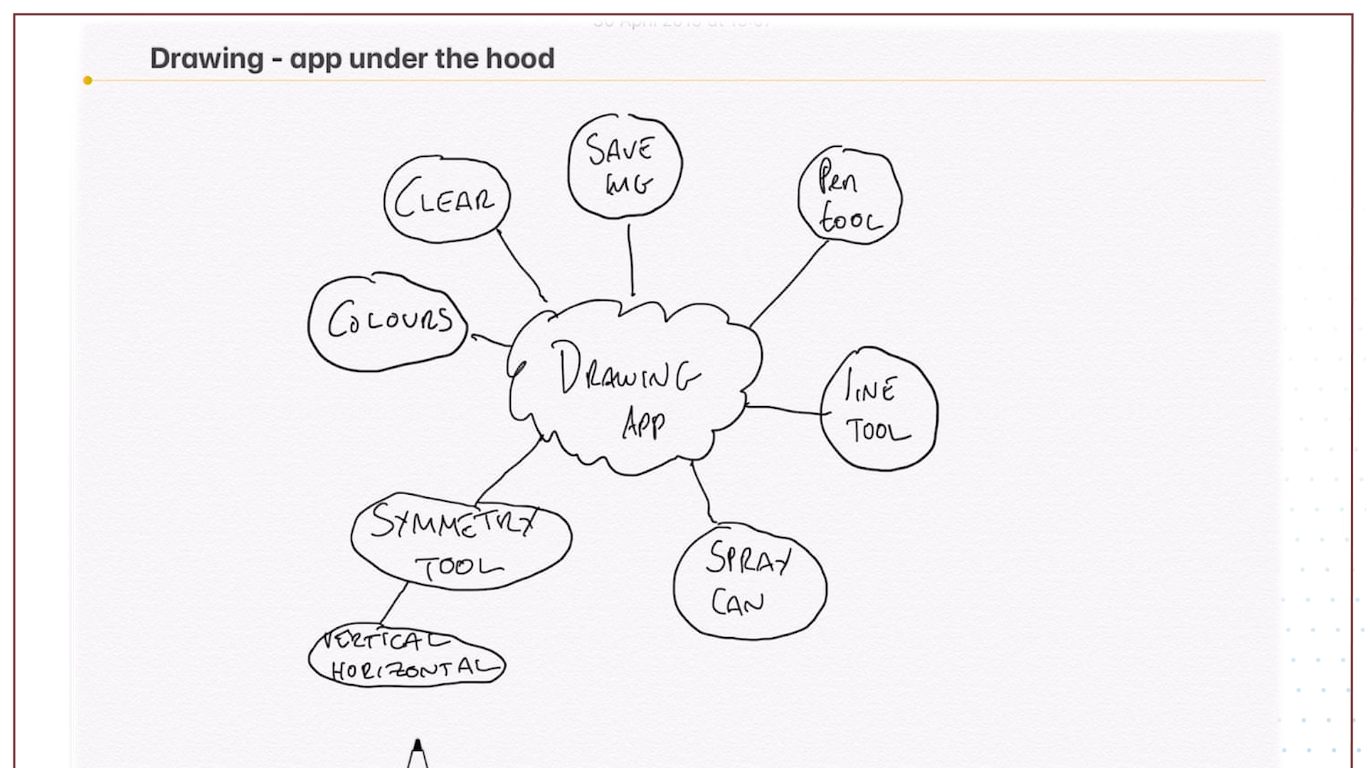 Drawing - app under the hood
SAVE
IMG
CLEAR
Pen
tool
COLOURS
DRAWING
APP
LINE
TOOL
SYMMETRY
TOOL
SPRAY
CAN
VERTICAL
HORIZONTAL